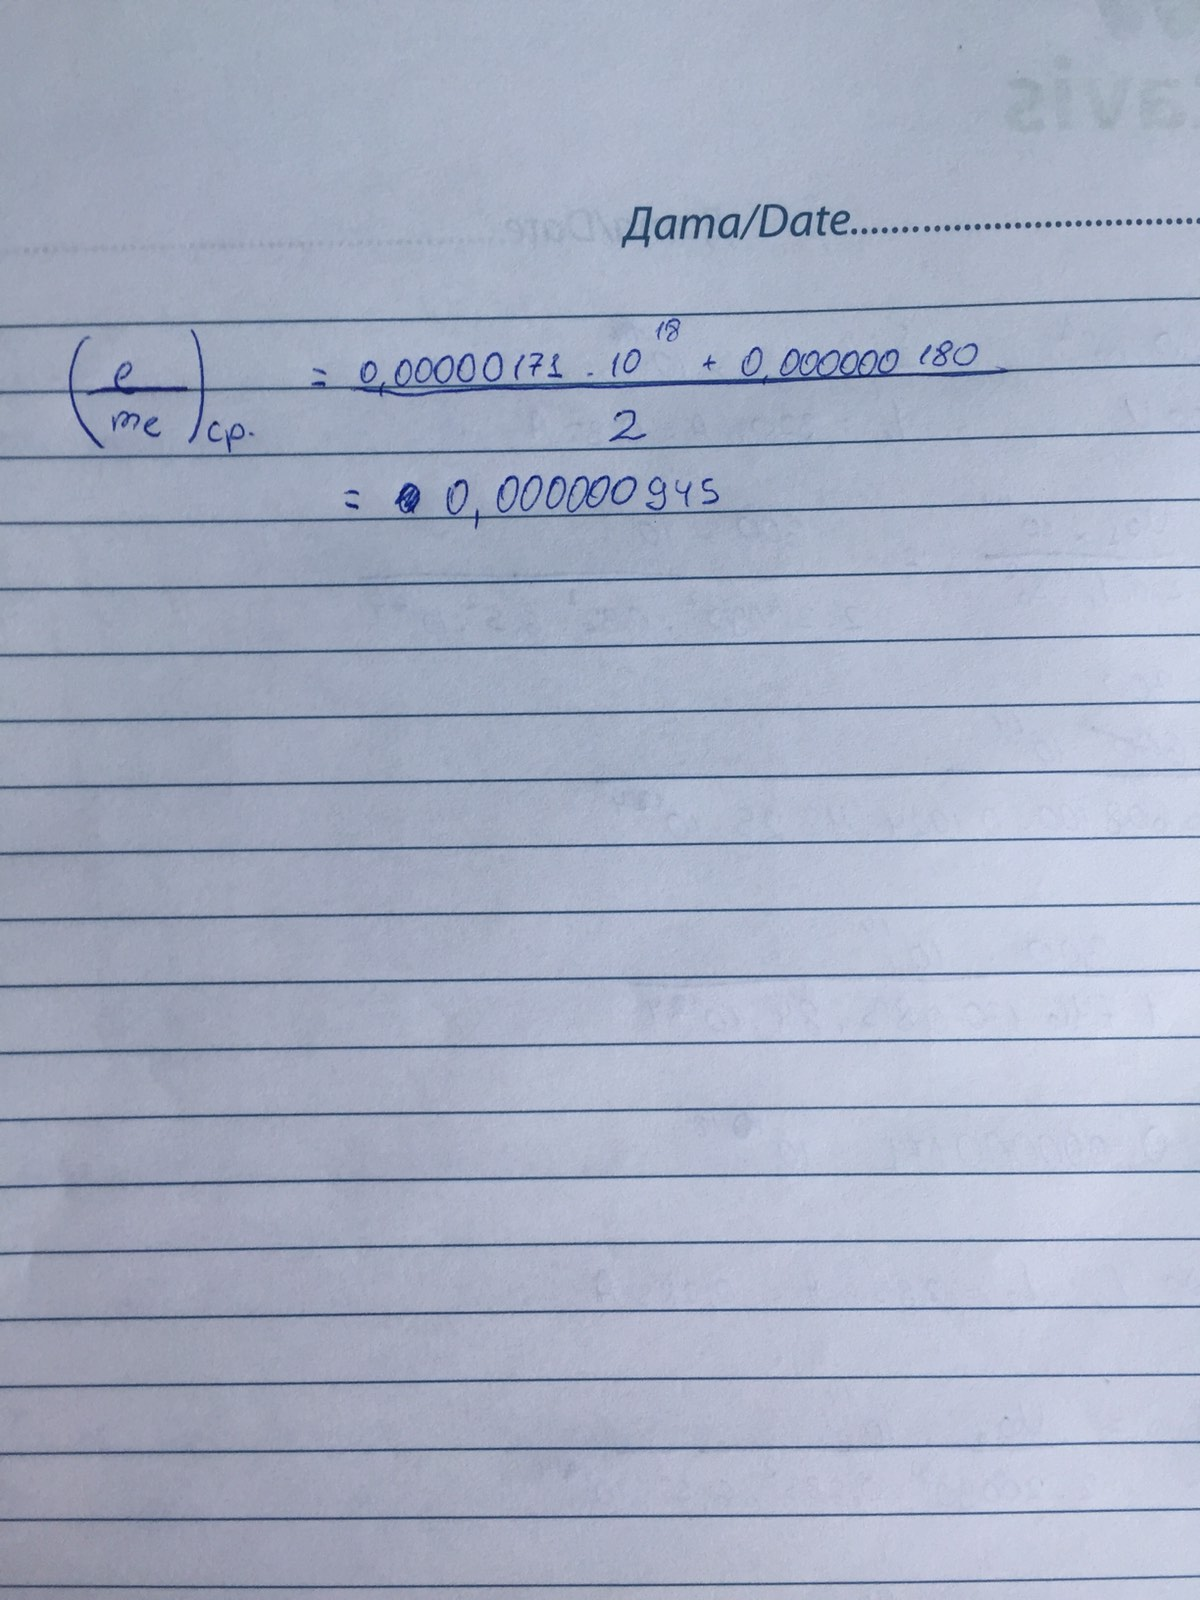 Дата/Date
(e/me)ср. = (0,00000171 · 10^18 + 0,000000180)/2
= 0,000000945